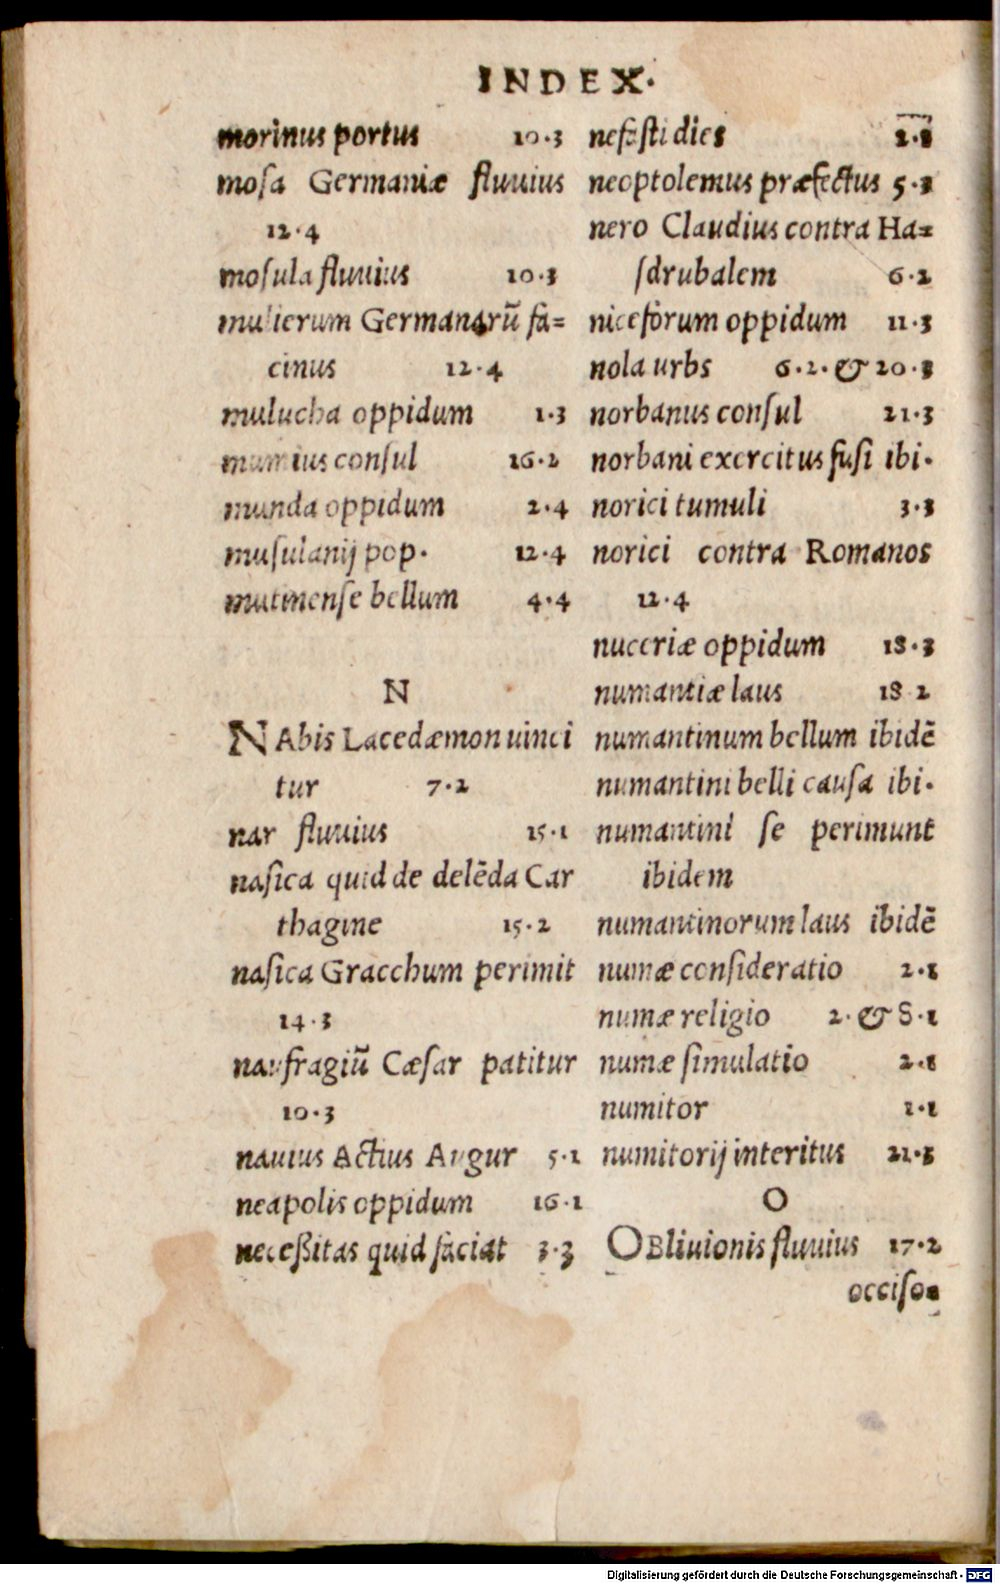 INDEX.
morinus portus 10.3
mosa Germaniæ fluuius
12.4
mosula fluuius 10.3
mulierum Germanarũ fa=
cinus 12.4
mulucha oppidum 1.3
mummius consul 16.2
munda oppidum 2.4
musulanij pop. 12.4
mutinense bellum 4.4
N
NAbis Lacedæmon uinci
tur 7.2
nar fluuius 15.1
nasica quid de delẽda Car
thagine 15.2
nasica Gracchum perimit
14.3
naufragiũ Cæsar patitur
10.3
nauius Actius Augur 5.1
neapolis oppidum 16.1
neceßitas quid faciat 3.3
nefasti dies 2.1
neoptolemus præfectus 5.3
nero Claudius contra Ha=
sdrubalem 6.2
niceforum oppidum 11.3
nola urbs 6.2. & 20.3
norbanus consul 21.3
norbani exercitus fusi ibi.
norici tumuli 3.3
norici contra Romanos
12.4
nuceriæ oppidum 18.3
numantiæ laus 18 2
numantinum bellum ibidẽ
numantini belli causa ibi.
numantini se perimunt
ibidem
numantinorum laus ibidẽ
numæ consideratio 2.1
numæ religio 2. & 8.1
numæ simulatio 2.1
numitor 1.1
numitorij interitus 21.3
O
OBliuionis fluuius 17.2
occiso=
Digitalisierung gefördert durch die Deutsche Forschungsgemeinschaft - DFG